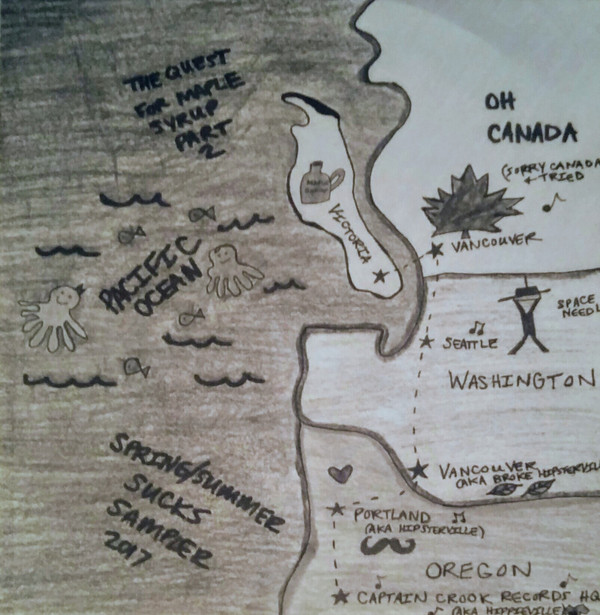 THE QUEST
FOR MAPLE
SYRUP
PART
2
OH
CANADA
(SORRY CANADA
I TRIED
VICTORIA
VANCOUVER
PACIFIC
OCEAN
SPACE
NEEDL
SEATTLE
WASHINGTON
VANCOUVER
(AKA BROKE HIPSTERVIL
SPRING/SUMMER
SUCKS
SAMPLER
2017
PORTLAND
(AKA HIPSTERVILLE)
OREGON
CAPTAIN CROOK RECORDS HQ
(AKA HIPPSTERVILLE)